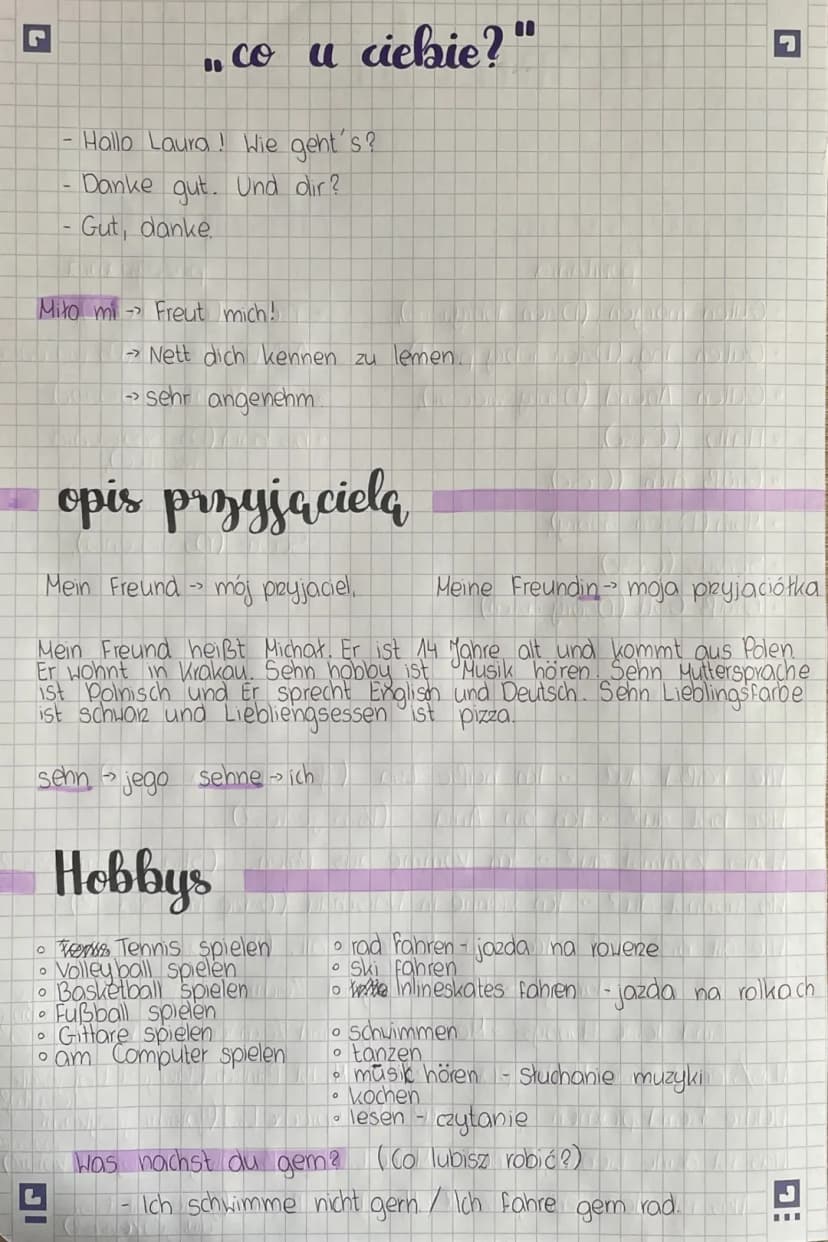 „co u ciebie?"
- Hallo Laura! Wie geht's?
- Danke gut. Und dir?
- Gut, danke.
Miło mi → Freut mich!
→ Nett dich kennen zu lernen.
→ sehr angenehm
opis przyjaciela
Mein Freund → mój przyjaciel, Meine Freundin → moja przyjaciółka
Mein Freund heißt Michał. Er ist 14 Jahre alt und kommt aus Polen.
Er wohnt in Krakau. Sehn hobby ist Musik hören. Sehn Muttersprache
ist Polnisch und Er sprecht Englisch und Deutsch. Sehn Lieblingsfarbe
ist schwarz und Liebliengsessen ist pizza.
sehn → jego sehne → ich
Hobbys
Tennis spielen
Volleyball spielen
Basketball spielen
Fußball spielen
Gittare spielen
am Computer spielen
rad fahren - jazda na rowerze
ski fahren
Inlineskates fahren - jazda na rolkach
schwimmen
tanzen
musik hören - słuchanie muzyki
kochen
lesen - czytanie
was nachst du gern? (Co lubisz robić?)
- Ich schwimme nicht gern / Ich fahre gern rad.